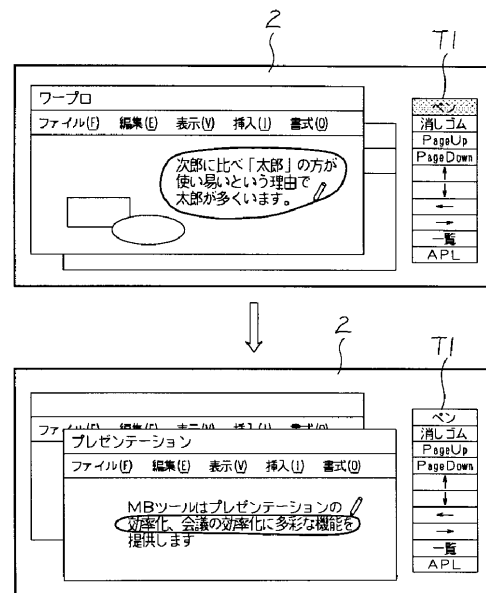 2
T1
ワープロ
ファイル(F) 編集(E) 表示(V) 挿入(I) 書式(O)
次郎に比べ「太郎」の方が
使い易いという理由で
太郎が多くいます。
ペン
消しゴム
PageUp
PageDown
↑
↓
←
→
一覧
APL
2
T1
ファイル(F) 編集(E) 表示(V) 挿入(I) 書式(O)
プレゼンテーション
ファイル(F) 編集(E) 表示(V) 挿入(I) 書式(O)
MBツールはプレゼンテーションの
効率化、会議の効率化に多彩な機能を
提供します
ペン
消しゴム
PageUp
PageDown
↑
↓
←
→
一覧
APL